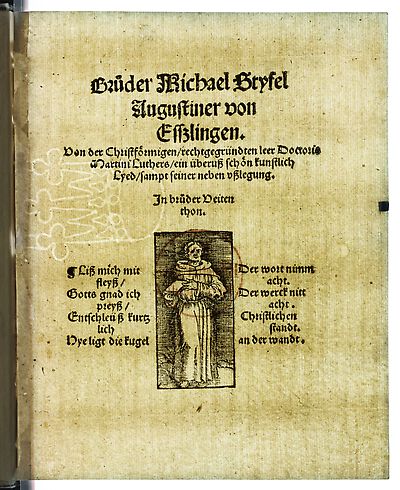 Brůder Michael Styfel
Augustiner von
Esszlingen.
Von der Christförmigen/rechtgegründten leer Doctoris
Martini Luthers/ein überuß schön kunstlich
Lyed/sampt seiner neben vßlegung.
In brůder Veiten
thon.
¶ Liß mich mit
fleyß/
Gotts gnad ich
preyß/
Entschleüß kurtz
lich
Hye ligt die kugel
Der wort nimm
acht.
Der werck nitt
acht.
Christlichen
standt.
an der wandt.